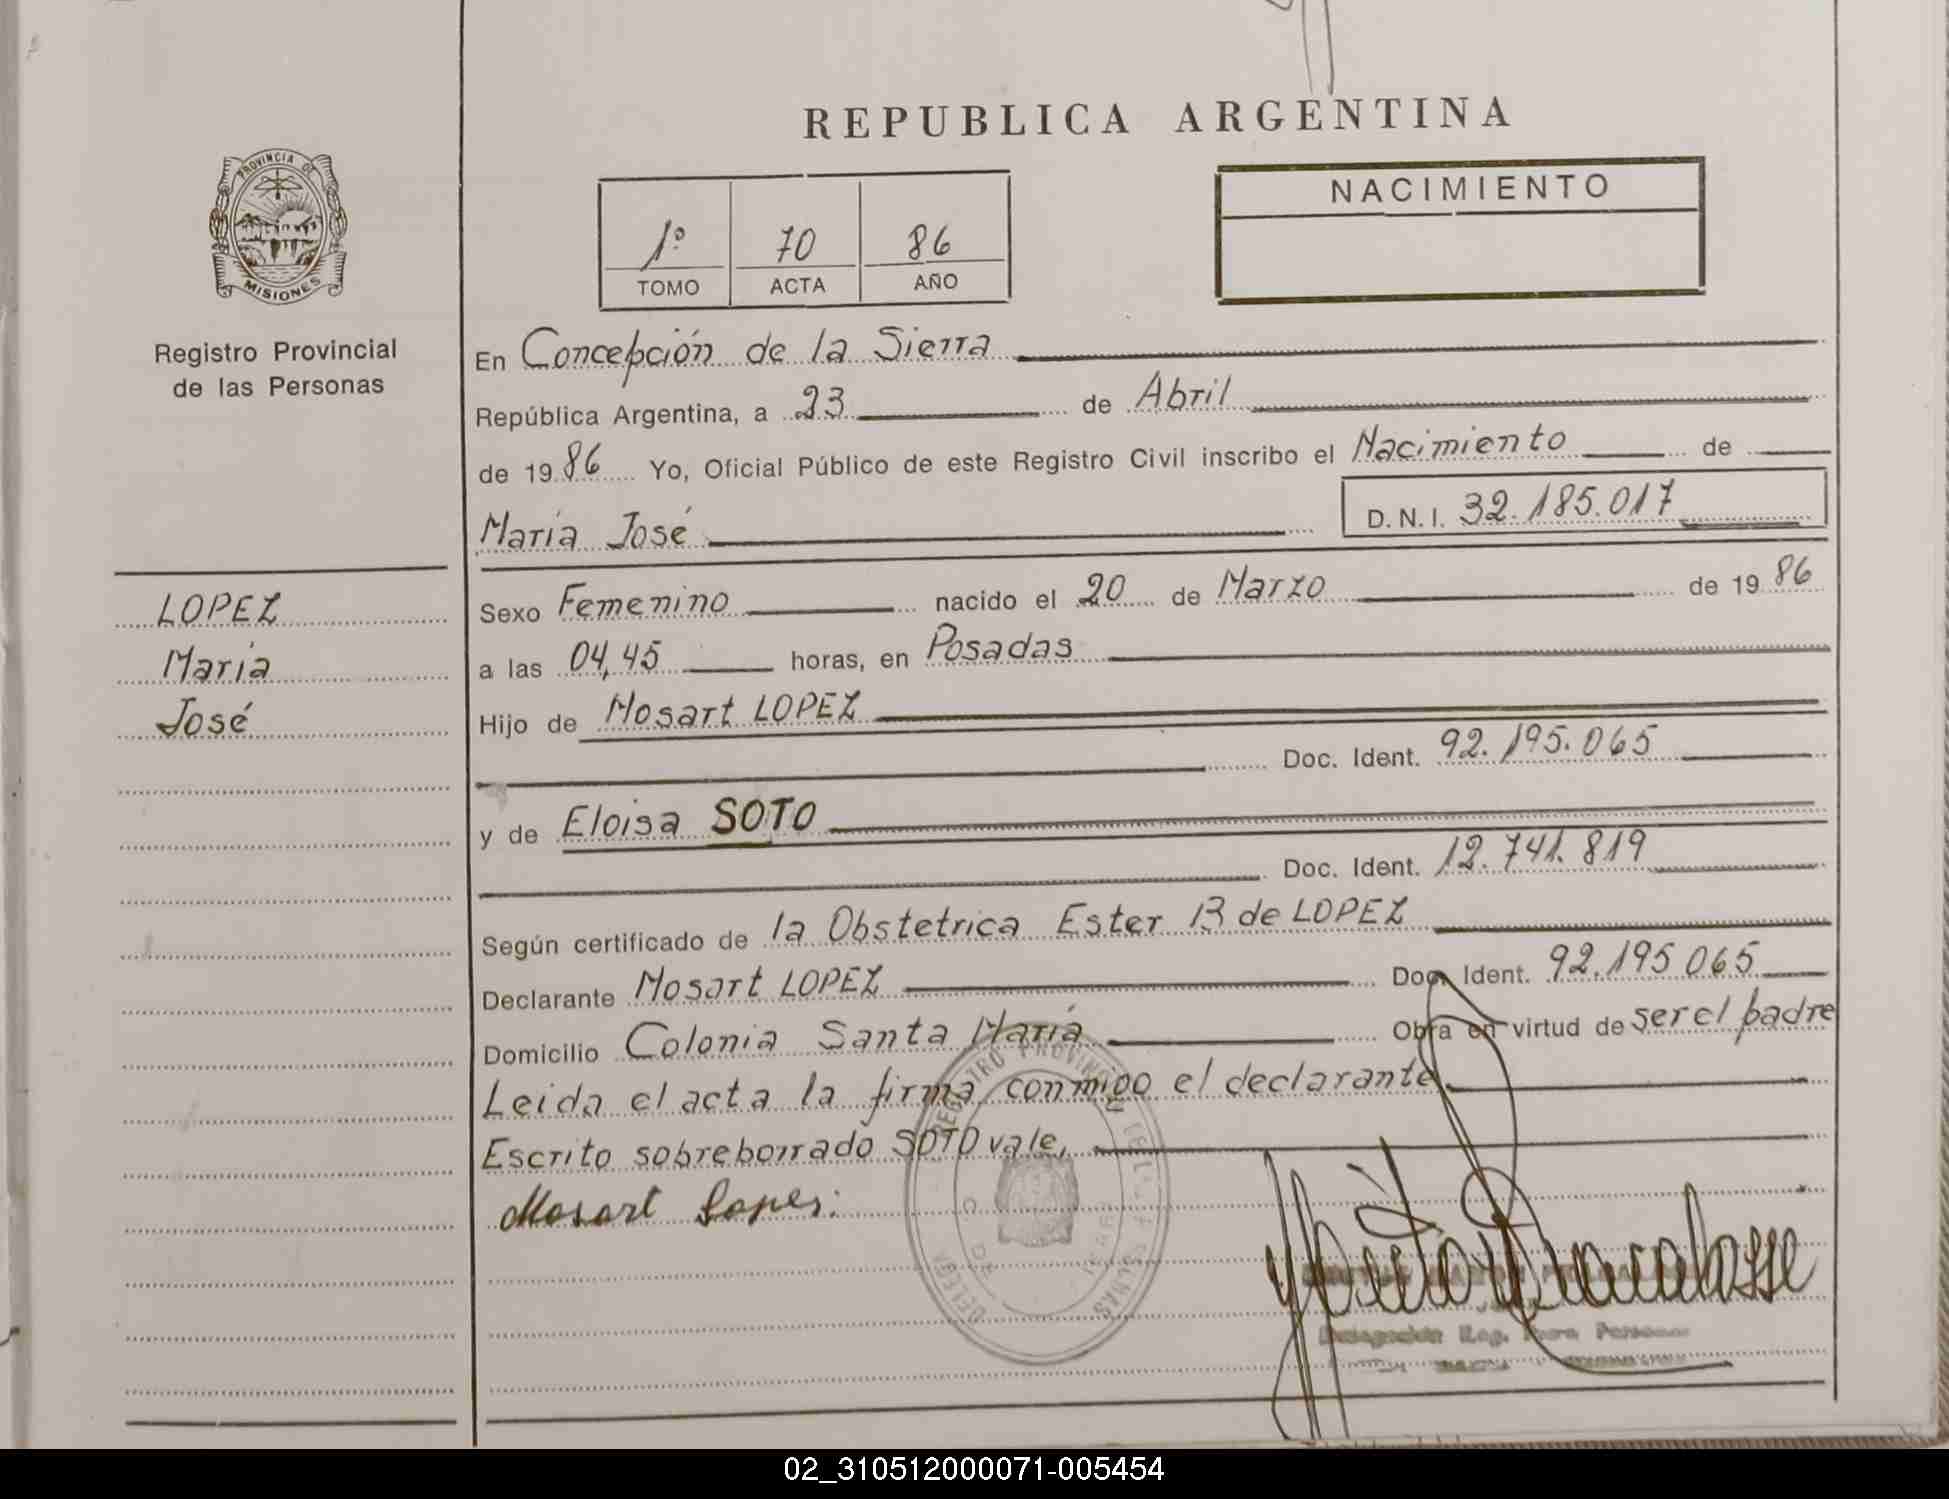 REPUBLICA ARGENTINA
PROVINCIA DE
MISIONES
Registro Provincial
de las Personas
1º 70 86
TOMO ACTA AÑO
NACIMIENTO
En Concepción de la Sierra
República Argentina, a 23 de Abril
de 1986 Yo, Oficial Público de este Registro Civil inscribo el Nacimiento de
María José D.N.I. 32.185.017
LOPEZ
María
José
Sexo Femenino nacido el 20 de Marzo de 1986
a las 04,45 horas, en Posadas
Hijo de Mosart LOPEZ
Doc. Ident. 92.195.065
y de Eloisa SOTO
Doc. Ident. 12.741.819
Según certificado de la Obstetrica Ester B de LOPEZ
Declarante Mosart LOPEZ Doc. Ident. 92.195065
Domicilio Colonia Santa María Obra en virtud de ser el padre
Leida el acta la firma conmigo el declarante
Escrito sobreborrado SOTO vale,
Mosart Lopes.
REGISTRO PROVINCIAL DE LAS PERSONAS
02_310512000071-005454